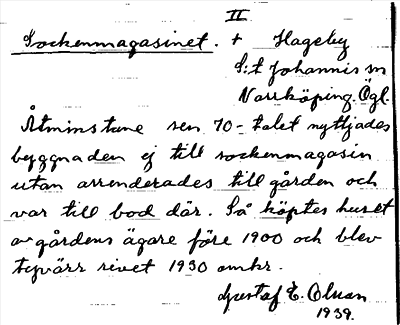 II
Sockenmagasinet. + Hageby
S:t Johannis sn
Norrköping. Ögl.
Åtminstone sen 70-talet nyttjades
byggnaden ej till sockenmagasin
utan arrenderades till gården och
var till bod där. Så köptes huset
av gårdens ägare före 1900 och blev
tyvärr rivet 1930 omkr.
Gustaf E. Olsson
1939.